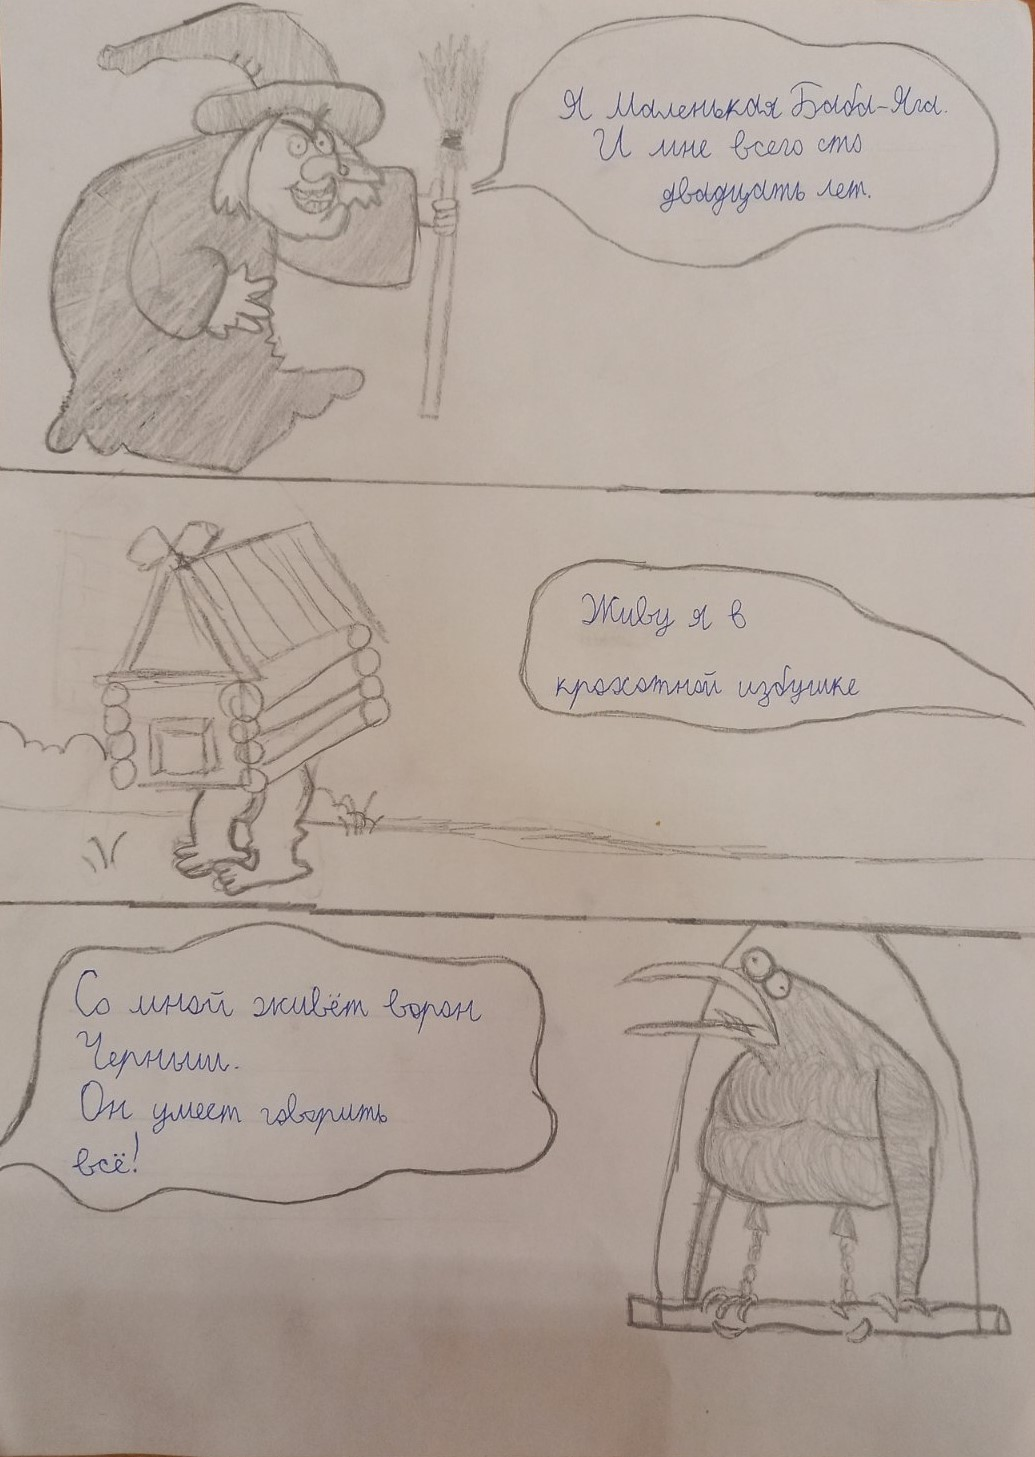 Я Маленькая Баба-Яга.
И мне всего сто
двадцать лет.
Живу я в
крохотной избушке
Со мной живёт ворон
Черныш.
Он умеет говорить
всё!